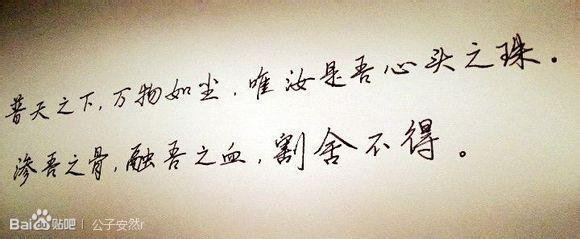 普天之下,万物如尘,唯汝是吾心头之珠.
渗吾之骨,融吾之血,割舍不得。
Bai贴吧 | 公子安然r